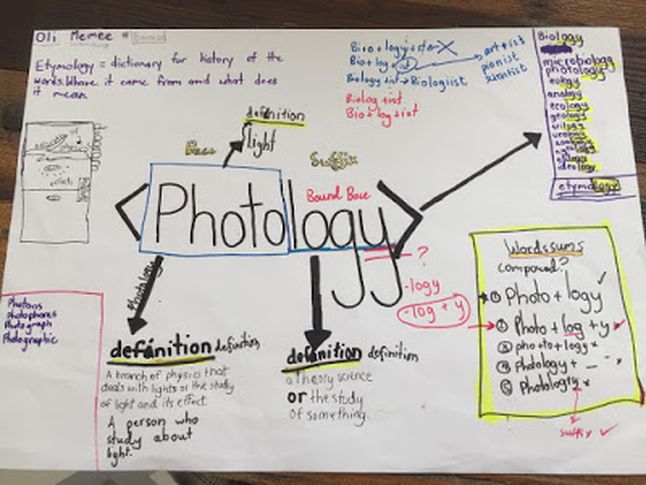 Oli Memee
Etymology = dictionary for history of the
words. Where it came from and what does
it mean.
Bio + logy + ist X
Bio + log
Biology + ist → Biologist
Biolog + ist
Bio + log + ist
art + ist
pianist
scientist
Biology
microbiology
photology
eulogy
analogy
ecology
geology
etymology
definition
light
Base
Suffix
Bound Base
<Photology>
?
-logy
-log + y
Photology
definition definition
A branch of physics that
deals with lights or the study
of light and its effect.
A person who
study about
light.
definition definition
a theory science
or the study
of something.
Photons
Photophores
Photograph
Photographic
Wordssums
composed?
① Photo + logy ✓
② Photo + log + y x
③ photo + logy x
④ Photology + _ x
⑤ Photology x
suffix ✓